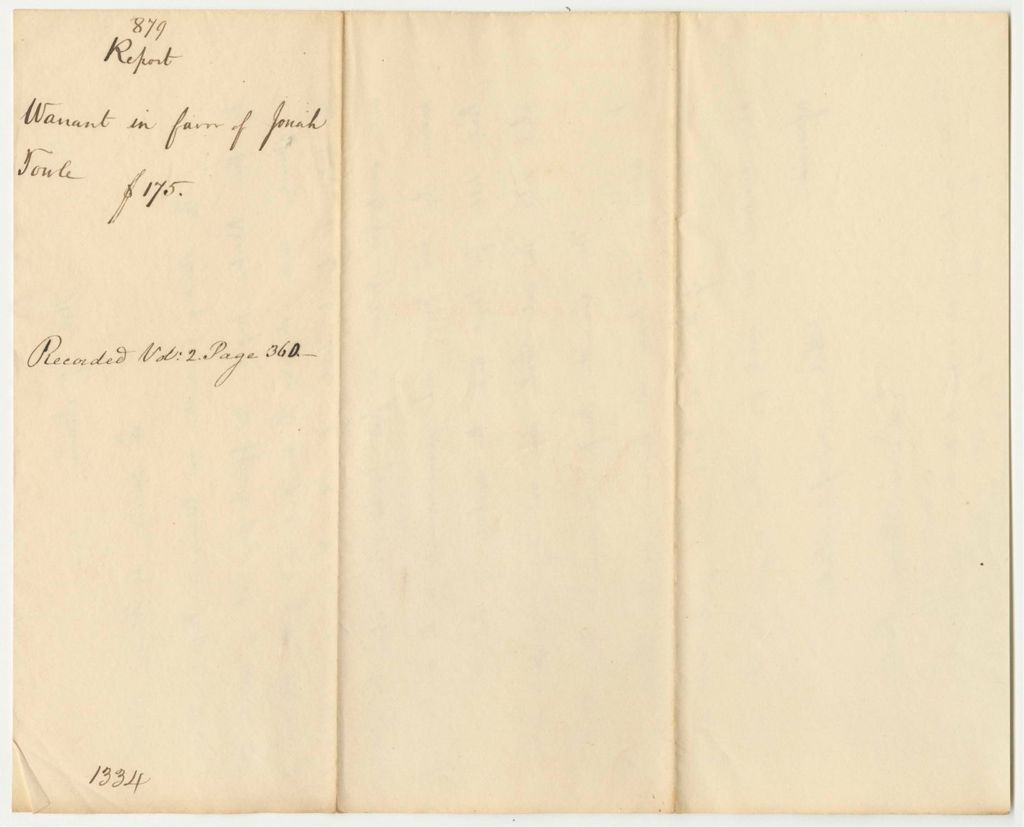 879
Report
Warrant in favor of Jonah
Towle
$175.
Recorded Vol: 2. Page 360.—
1334